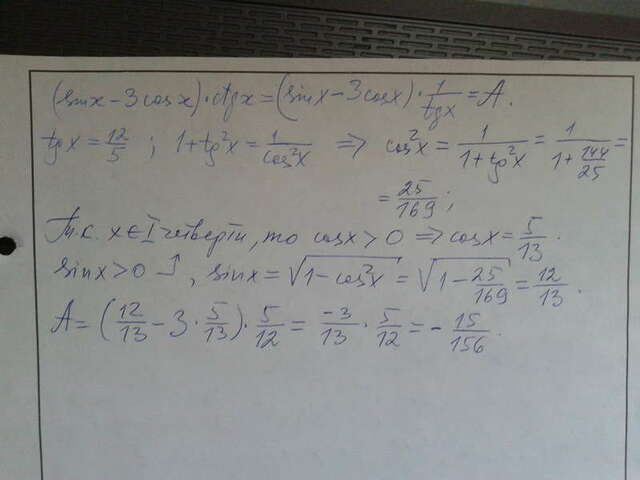 (sinx − 3cosx)·ctgx = (sinx − 3cosx)·1/tgx = A.
tgx = 12/5 ; 1+tg²x = 1/cos²x ⇒ cos²x = 1/(1+tg²x) = 1/(1+144/25) =
= 25/169 ;
Т.к. x ∈ I четверти, то cosx > 0 ⇒ cosx = 5/13.
sinx > 0 , sinx = √(1−cos²x) = √(1−25/169) = 12/13.
A = (12/13 − 3·5/13)·5/12 = −3/13 · 5/12 = −15/156.